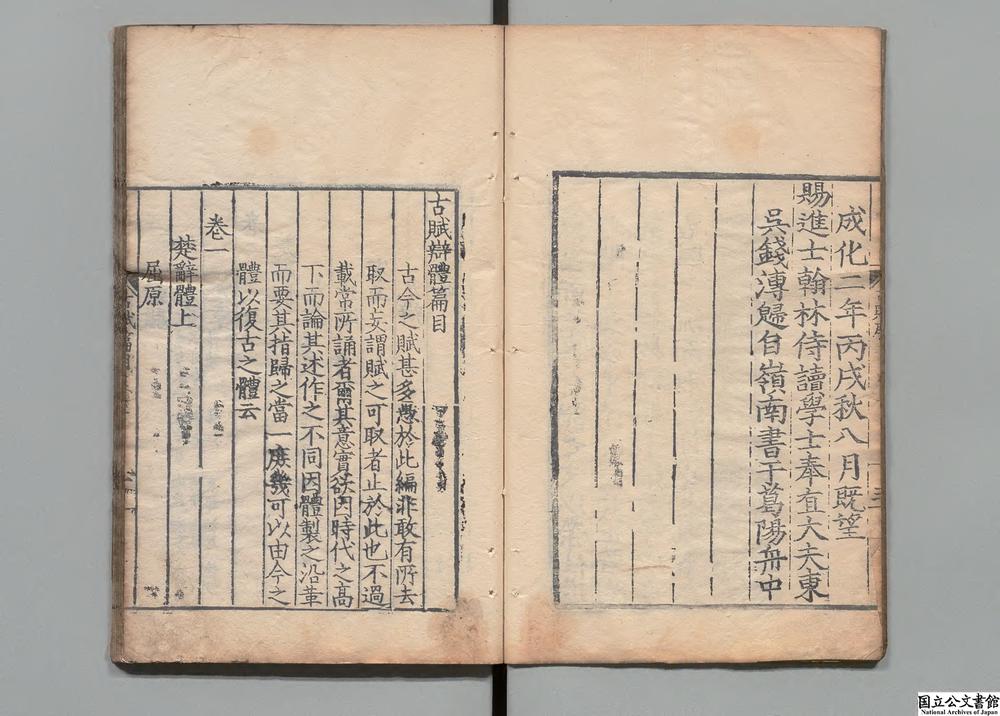 成化二年丙戌秋八月既望
賜進士翰林侍讀學士奉直大夫東
吳錢溥歸自嶺南書于葛陽舟中
古賦辯體篇目
古今之賦甚多愚於此編非敢有所去
取而妄謂賦之可取者止於此也不過
載常所誦者爾其意實欲因時代之高
下而論其述作之不同因體製之沿革
而要其指歸之當一庶幾可以由今之
體以復古之體云
卷一
楚辭體上
屈原
国立公文書館
National Archives of Japan